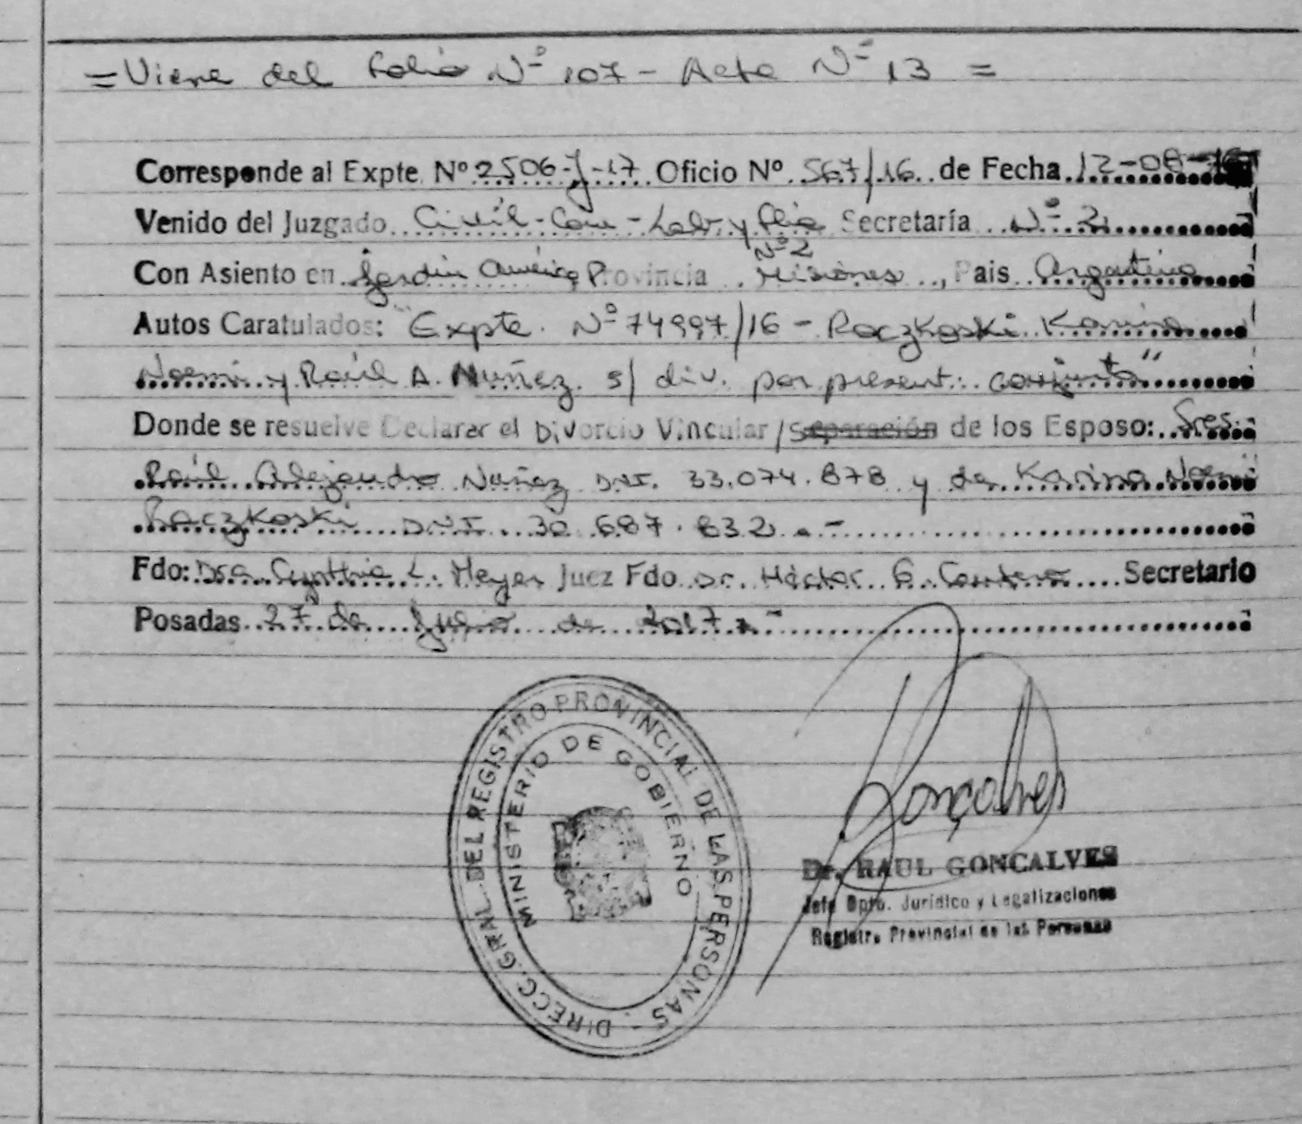 = Viene del folio Nº 107 - Acta Nº 13 =
Corresponde al Expte. Nº 2506-J-17 Oficio Nº 567/16 de Fecha 12-08-16
Venido del Juzgado Civil-Com-Lab. y Flia Secretaría Nº 2
Nº 2
Con Asiento en Jardín América Provincia Misiones, Pais Argentina
Autos Caratulados: "Expte. Nº 74997/16 - Raczkoski Karina
Noemi y Raúl A. Nuñez s/ div. por present. conjunta"
Donde se resuelve Declarar el Divorcio Vincular /Separación de los Esposo: Sres.
Raúl Alejandro Nuñez DNI. 33.074.878 y de Karina Noemi
Raczkoski DNI 30.687.832.-
Fdo: Dra. Cynthia L. Meyer Juez Fdo Dr. Héctor G. Secretario
Posadas 27 de Julio de 2017.-
DIRECC. GRAL. DEL REGISTRO PROVINCIAL DE LAS PERSONAS -
MINISTERIO DE GOBIERNO
Gonçalves
Dr. RAUL GONCALVES
Jefe Dpto. Jurídico y Legalizaciones
Registro Provincial de las Personas